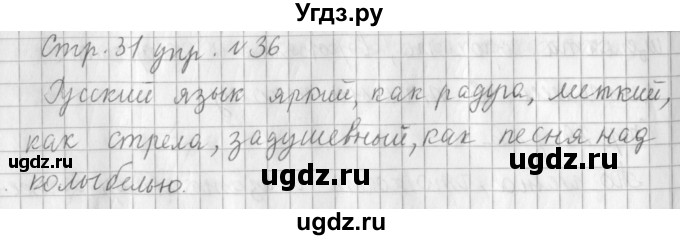 Угдз.ру
Стр. 31 упр. №36
Русский язык яркий, как радуга, меткий,
как стрела, задушевный, как песня над
ugdz.ru ugdz.ru
колыбелью.
ugdz.ru
ugdz.ru
ugdz.ru